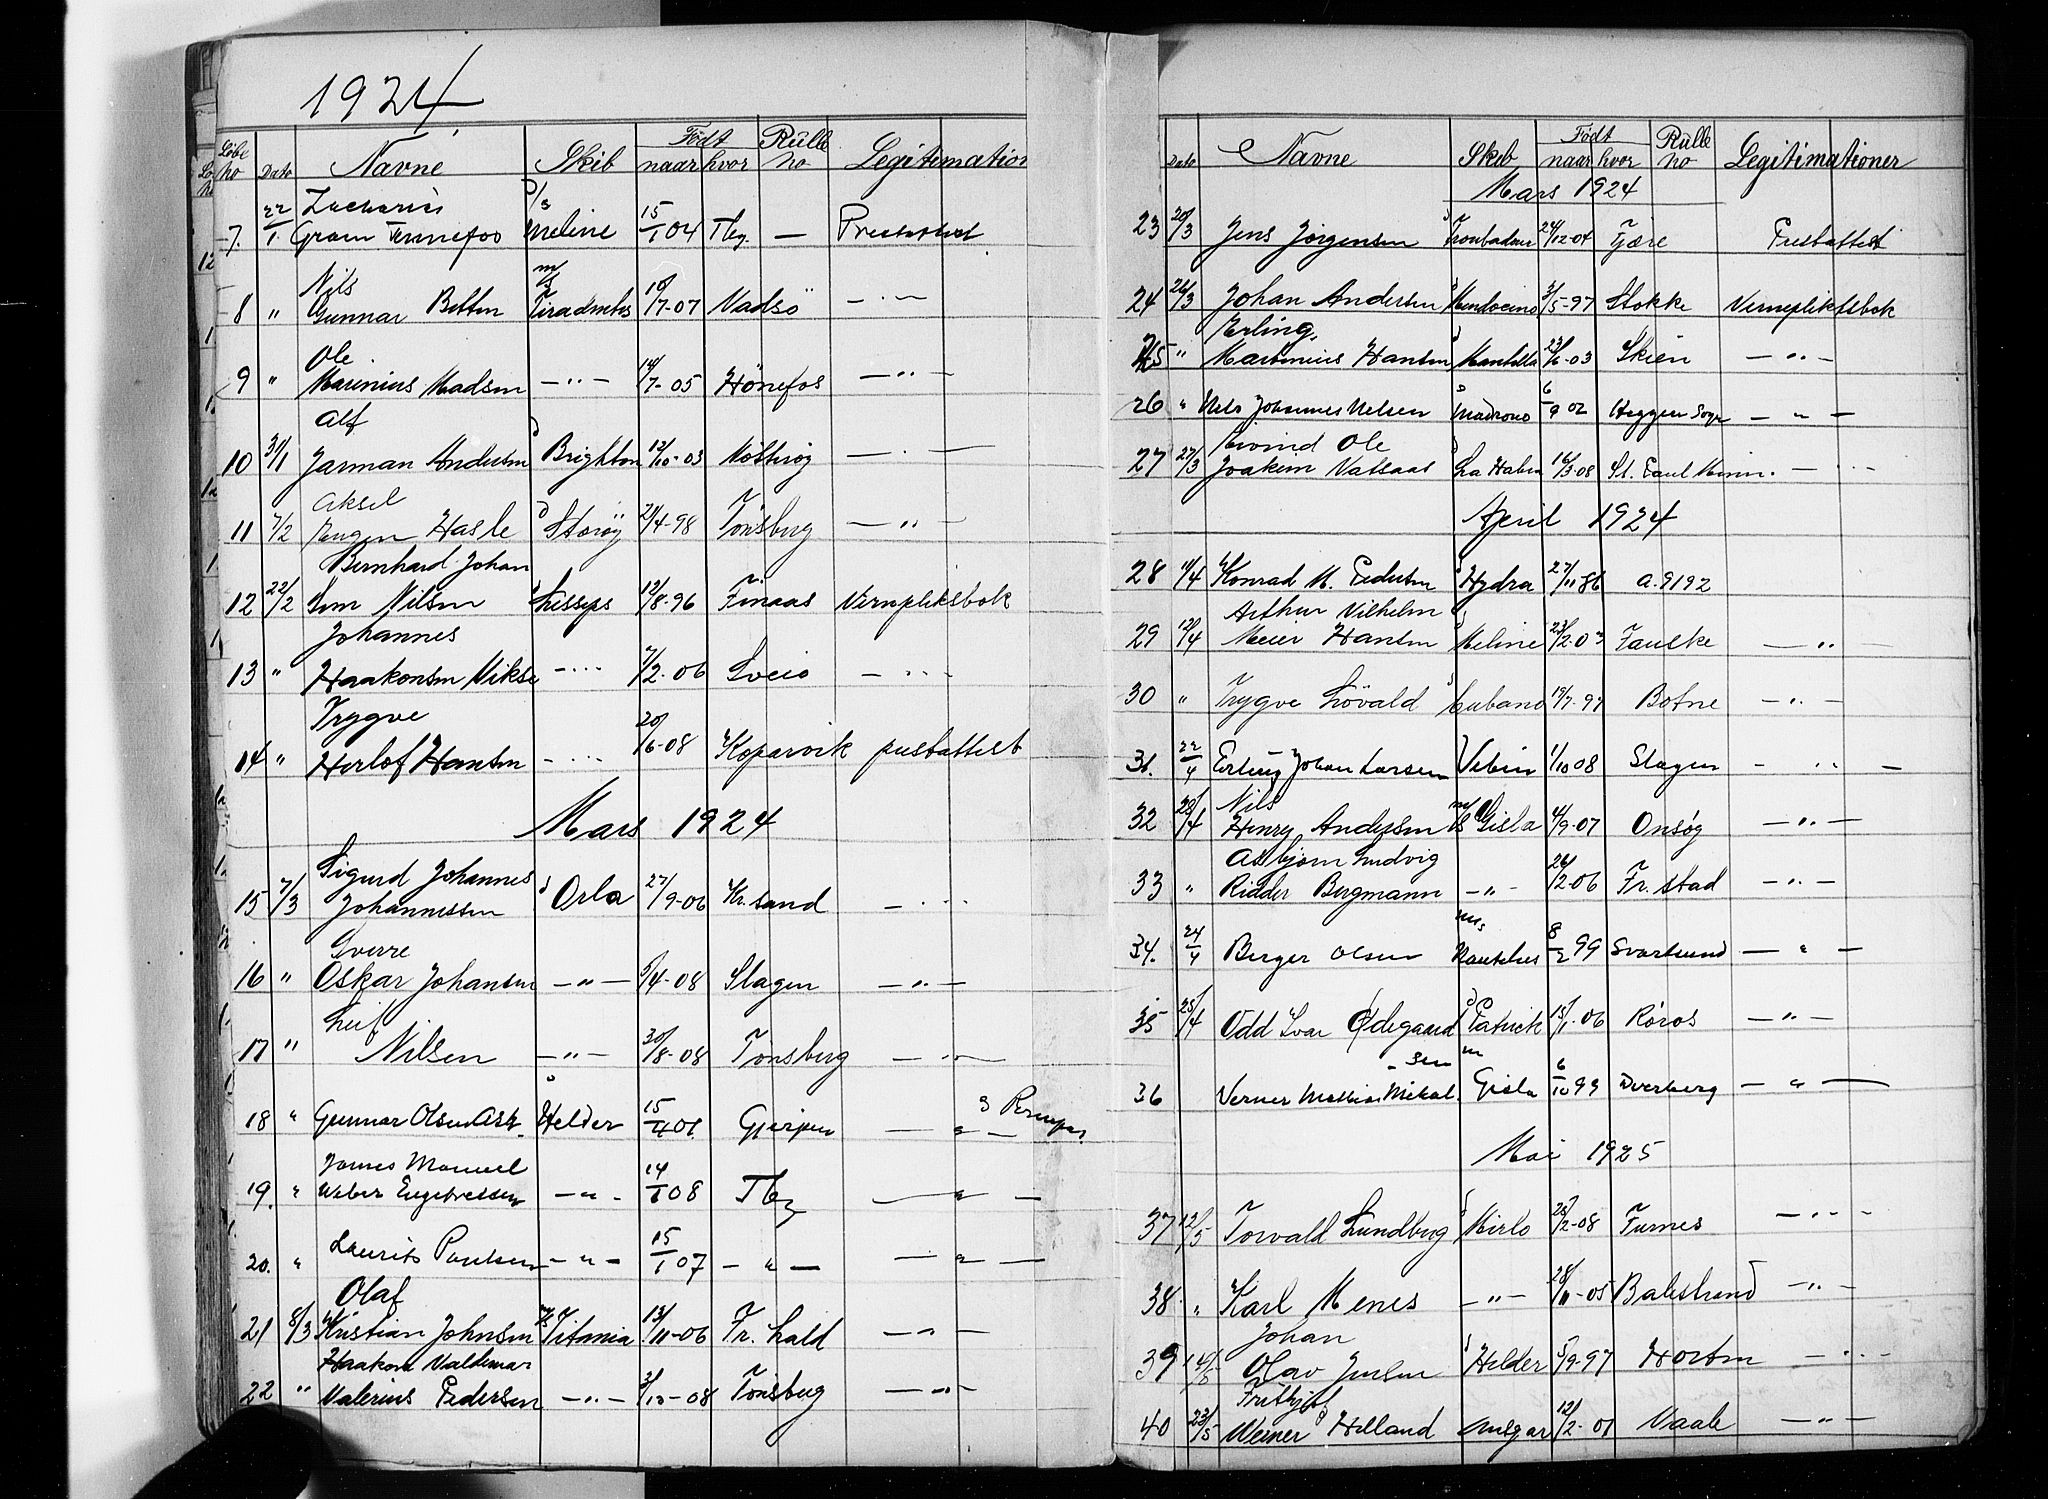 1924
Löbe no Dato Navne Skib Födt naar hvor Rülle no Legitimation
Zacharias D/s
7. 22/1. Gram Tennefos Meline 15/1 04 Tbg. — Prestattest
Nils m/s
8 " Gunnar Betten Tiradentes 10/7-07 Vadsö — " —
Ole
9 " Marinius Madsen — " — 14/7-05 Hönefos — " —
Alf
10 31/1 Jarman Andersen Brighton 12/10-03 Nötterøy — " —
Aksel
11 7/2 Eugen Hasle Storöy 21/4-98 Tönsberg — " —
Bernhard Johan
12 22/2 Nilsen Lesseps 12/8-96 Finaas Vernepliksbok
Johannes
13 " Haakonsen — " — 7/2-06 Sveio — " —
Trygve
14 " Herlof Hansen — " — 20/6-08 Kopervik prestattest
Mars 1924
Sigurd Johannes
15 7/3 Johannessen Orla 27/9-06 Kr.sand — " —
Sverre
16 " Oskar Johansen — " — 5/4-08 Slagen — " —
Leif
17 " Nilsen — " — 30/8-08 Tönsberg — " —
18 " Gunnar Olsen Ask Helder 15/4 01 Gjerpen — " —
James Manuel
19. " Weber Engebretsen — " — 14/1 08 Tbg — " —
20. " Laurits Paulsen — " — 15/1 07 — " — — " —
Olaf
21 8/3 Kristian Johnsen m/s Titania 13/11-06 Fr. hald — " —
Haakon Valdemar
22 " Valerius Pedersen — " — 3/10-08 Tönsberg — " —
Dato Navne Skib Födt naar hvor Rülle no Legitimationer
Mars 1924
23 20/3 Jens Jörgensen Troubadour 24/12-04 Fjære Prestattest
24 26/3 Johan Andersen Mendocino 3/5-97 Stokke Vernepliktsbok
Erling
25 " Martinius Hansen Mantilla 23/6-03 Skien — " —
26 " Nils Johannes Nelsen Madrono 6/9 02 Heggen Sogn — " —
Eivind Ole
27 27/3 Joakim Vatsaas La Habra 16/3-08 St. Paul Minn. — " —
April 1924
28 11/4 Konrad M. Pedersen Hydra 27/11 86 A.9192
Arthur Vilhelm
29 12/4 Meier Hansen Meline 23/2-03 Fauske — " —
30 " Trygve Lövald Cubano 19/7-97 Botne — " —
31. 22/4 Erling Johan Larsen 1/10 08 Slagen — " —
Nils
32 23/4 Henry Andersen m/s Gisla 4/9-07 Onsøy — " —
Asbjörn Ludvig
33 " Ridder Bergmann — " — 26/2-06 Fr. stad — " —
34. 24/4 Birger Olsen m/s Nautilus 8/2 99 Svartsund — " —
35 25/4 Odd Ivar Ødegaard Patrick 15/1-06 Røros — " —
-sen m
36 Verner Mathias Mikal. Gisla 6/10 99 Dverberg — " —
Mai 1925
37 12/5 Torvald Lundberg Mirlo 28/2-08 Furnes — " —
38 " Karl Menes — " — 28/11-05 Balestrand — " —
Johan
39 Olav Jensen Helder 5/9-97 Horten — " —
Frithjof
40 23/5 Werner Helland Ansgar 12/2-01 Vaale — " —